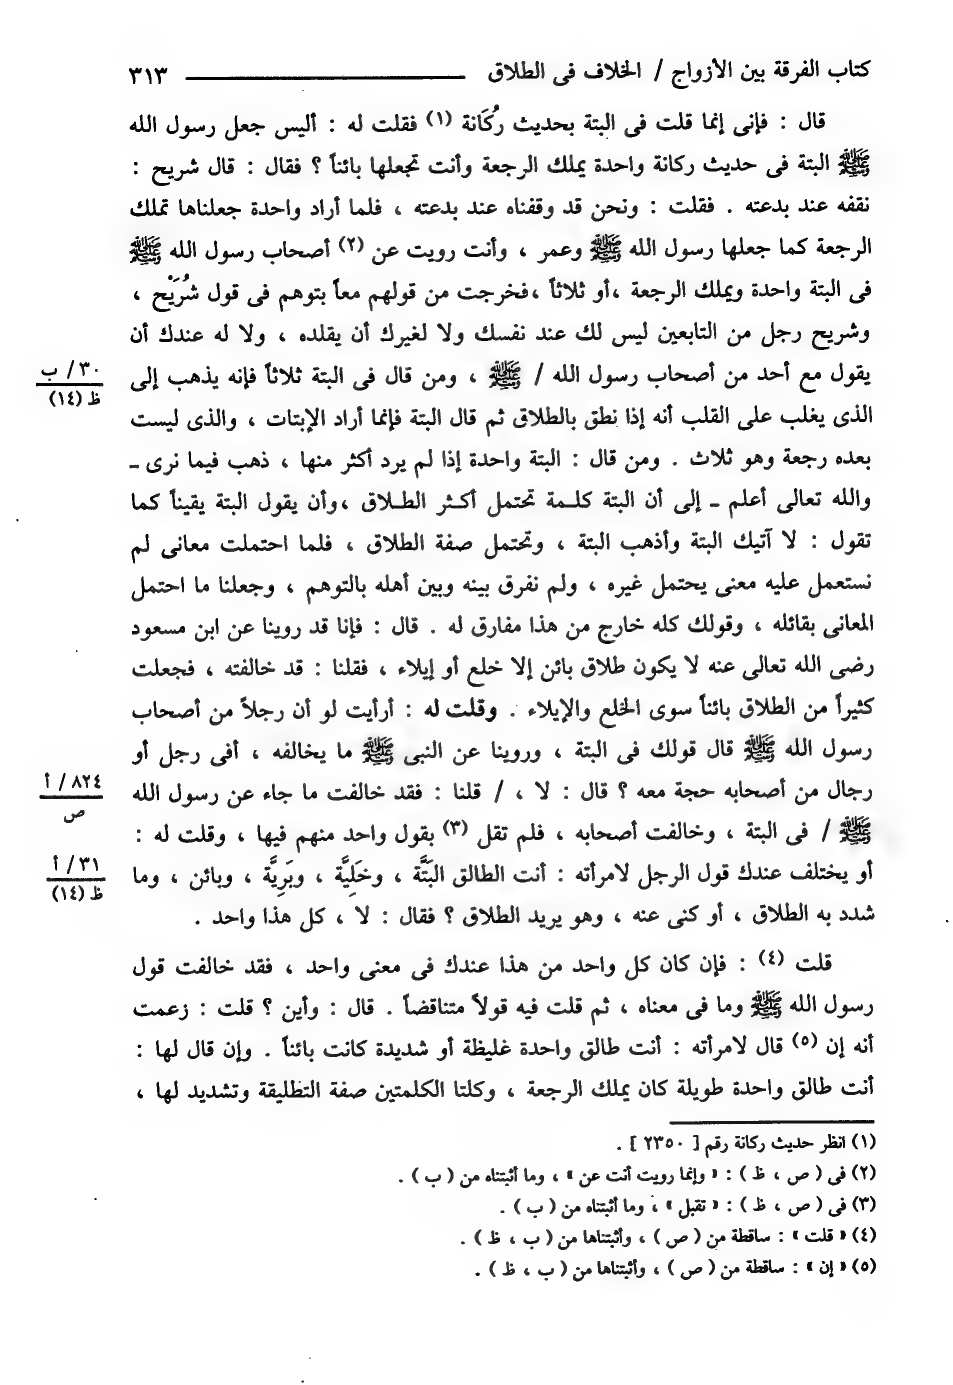 كتاب الفرقة بين الأزواج / الخلاف فى الطلاق ٣١٣
قال : فإنى إنما قلت فى البتة بحديث رُكَانة (١) فقلت له : أليس جعل رسول الله
ﷺ البتة فى حديث ركانة واحدة يملك الرجعة وأنت تجعلها بائناً ؟ فقال : قال شريح :
نقفه عند بدعته . فقلت : ونحن قد وقفناه عند بدعته ، فلما أراد واحدة جعلناها تملك
الرجعة كما جعلها رسول الله ﷺ وعمر ، وأنت رويت عن (٢) أصحاب رسول الله ﷺ
فى البتة واحدة ويملك الرجعة ،أو ثلاثاً ،فخرجت من قولهم معاً بتوهم فى قول شُرَيْح ،
وشريح رجل من التابعين ليس لك عند نفسك ولا لغيرك أن يقلده ، ولا له عندك أن
يقول مع أحد من أصحاب رسول الله / ﷺ ، ومن قال فى البتة ثلاثاً فإنه يذهب إلى
٣٠ / ب
ظ (١٤)
الذى يغلب على القلب أنه إذا نطق بالطلاق ثم قال البتة فإنما أراد الإبتات ، والذى ليست
بعده رجعة وهو ثلاث . ومن قال : البتة واحدة إذا لم يرد أكثر منها ، ذهب فيما نرى ـ
والله تعالى أعلم ـ إلى أن البتة كلـمة تحتمل أكـثر الطـلاق ،وأن يقول البتة يقيناً كما
تقول : لا آتيك البتة وأذهب البتة ، وتحتمل صفة الطلاق ، فلما احتملت معانى لم
نستعمل عليه معنى يحتمل غيره ، ولم نفرق بينه وبين أهله بالتوهم ، وجعلنا ما احتمل
المعانى بقائله ، وقولك كله خارج من هذا مفارق له . قال : فإنا قد روينا عن ابن مسعود
رضى الله تعالى عنه لا يكون طلاق بائن إلا خلع أو إيلاء ، فقلنا : قد خالفته ، فجعلت
كثيراً من الطلاق بائناً سوى الخلع والإيلاء . وقلت له : أرأيت لو أن رجلاً من أصحاب
رسول الله ﷺ قال قولك فى البتة ، وروينا عن النبى ﷺ ما يخالفه ، أفى رجل أو
رجال من أصحابه حجة معه ؟ قال : لا ، / قلنا : فقد خالفت ما جاء عن رسول الله
٨٢٤ / أ
ص
ﷺ / فى البتة ، وخالفت أصحابه ، فلم تقل (٣) بقول واحد منهم فيها ، وقلت له :
أو يختلف عندك قول الرجل لامرأته : أنت الطالق البَتَّة ، وخَلِيَّة ، وبَرِيَّة ، وبائن ، وما
٣١ / أ
ظ (١٤)
شدد به الطلاق ، أو كنى عنه ، وهو يريد الطلاق ؟ فقال : لا ، كل هذا واحد .
قلت (٤) : فإن كان كل واحد من هذا عندك فى معنى واحد ، فقد خالفت قول
رسول الله ﷺ وما فى معناه ، ثم قلت فيه قولاً متناقضاً . قال : وأين ؟ قلت : زعمت
أنه إن (٥) قال لامرأته : أنت طالق واحدة غليظة أو شديدة كانت بائناً . وإن قال لها :
أنت طالق واحدة طويلة كان يملك الرجعة ، وكلتا الكلمتين صفة التطليقة وتشديد لها ،
(١) انظر حديث ركانة رقم [ ٢٣٥٠ ] .
(٢) فى ( ص ، ظ ) : « وإنما رويت أنت عن » ، وما أثبتناه من ( ب ) .
(٣) فى ( ص ، ظ ) : « تقبل » ، وما أثبتناه من ( ب ) .
(٤) « قلت » : ساقطة من ( ص ) ، وأثبتناها من ( ب ، ظ ) .
(٥) « إن » : ساقطة من ( ص ) ، وأثبتناها من ( ب ، ظ ) .